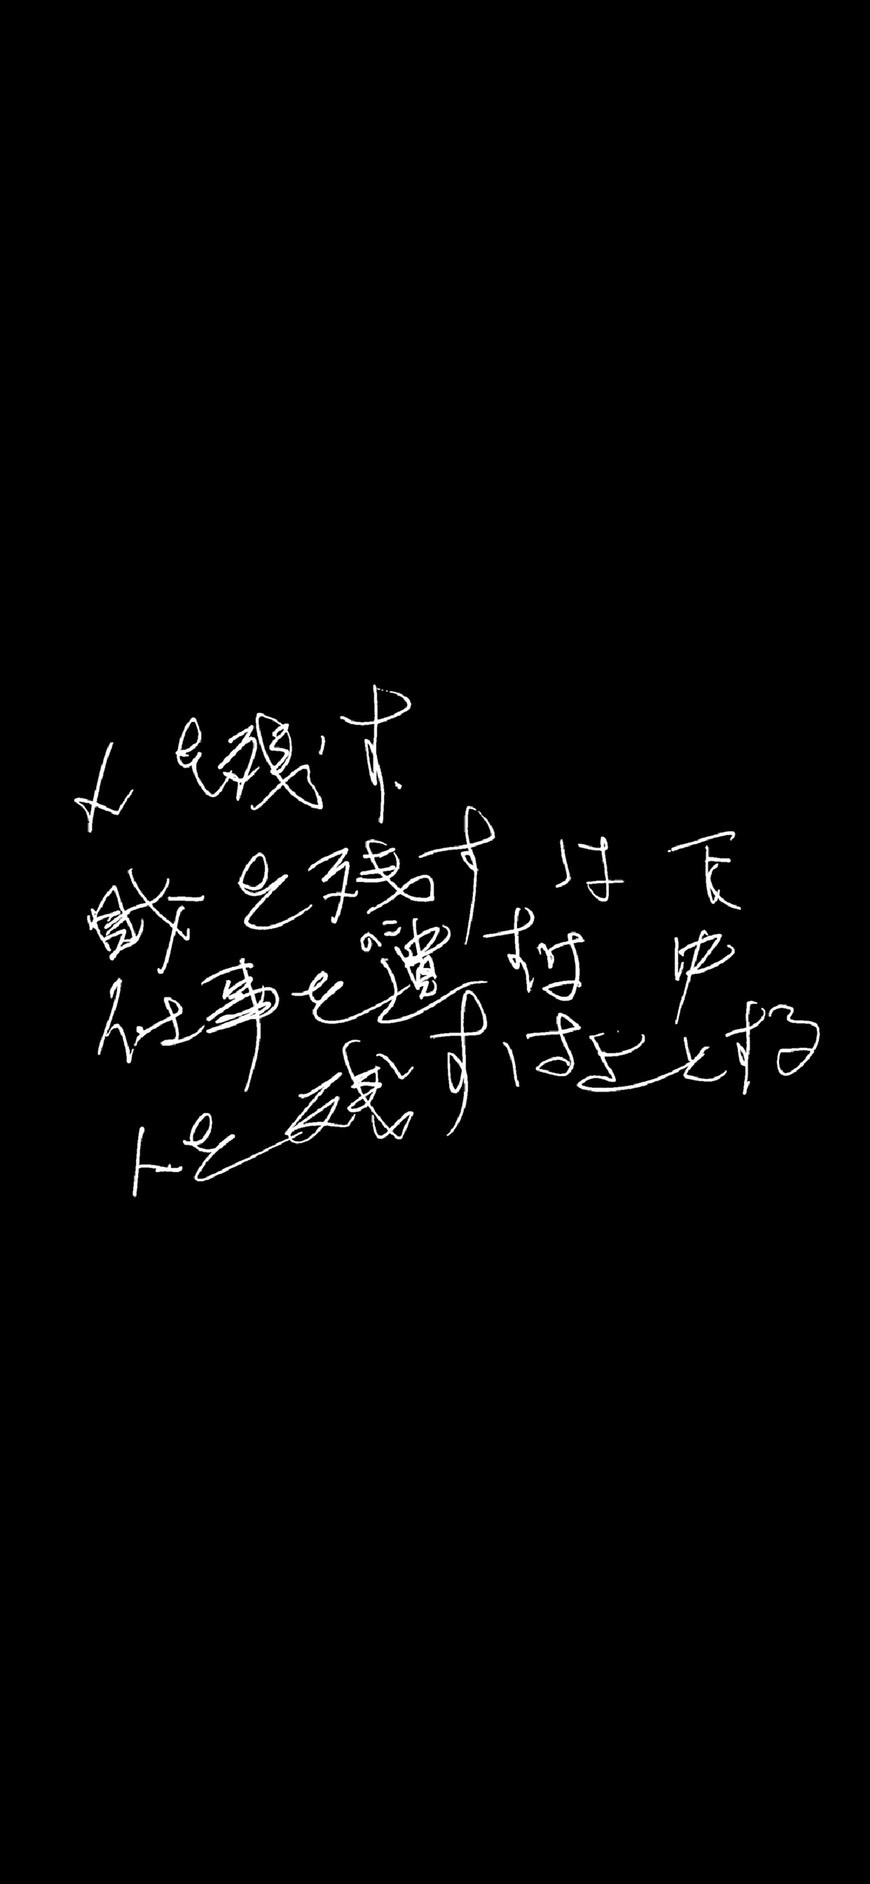 人を残す
財を残すは下
仕事を遺すは中
人を残すは上とする